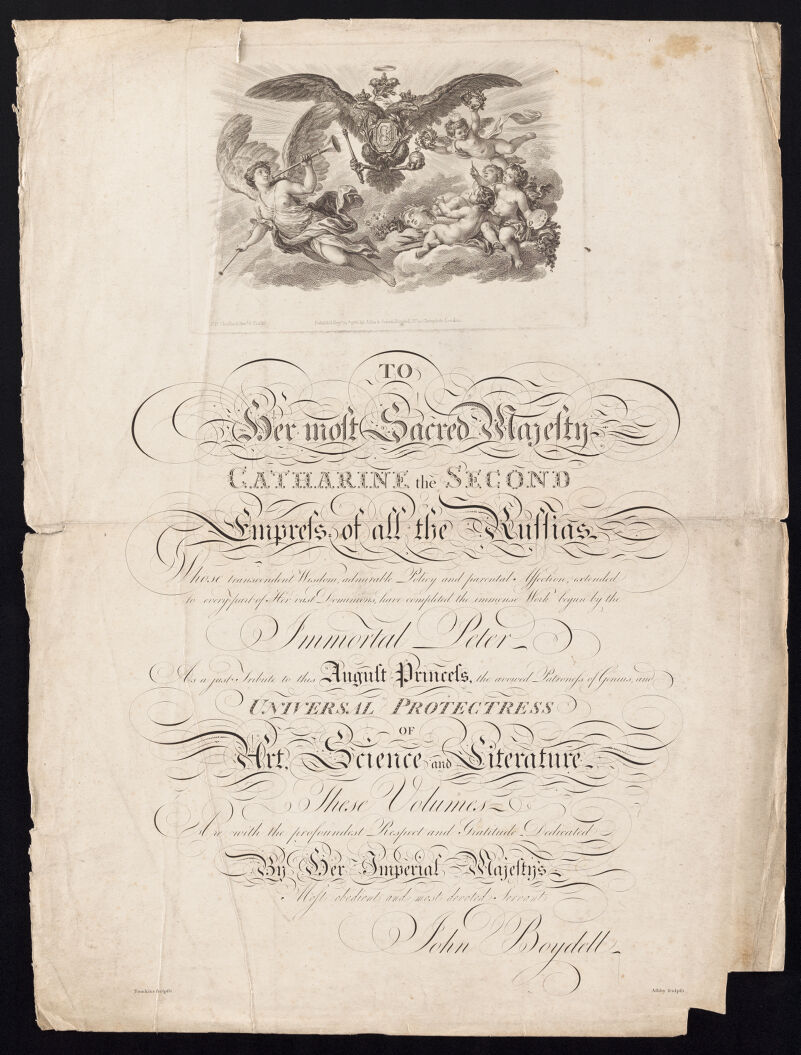 TO
Her moſt Sacred Majeſty
CATHARINE the SECOND
Empreſs of all the Ruſſias
Whose transcendent Wisdom, admirable Policy and parental Affection, extended
to every part of Her vast Dominions, have completed the immense Work begun by the
Immortal Peter
As a just Tribute to this Auguſt Princeſs, the avowed Patroneſs of Genius, and
UNIVERSAL PROTECTRESS
OF
Art, Science and Literature
These Volumes
Are with the profoundest Respect and Gratitude Dedicated
By Her Imperial Majeſty's
Moſt obedient and most devoted Servant
John Boydell
Tomkins sculpſit
Ashby sculpſit